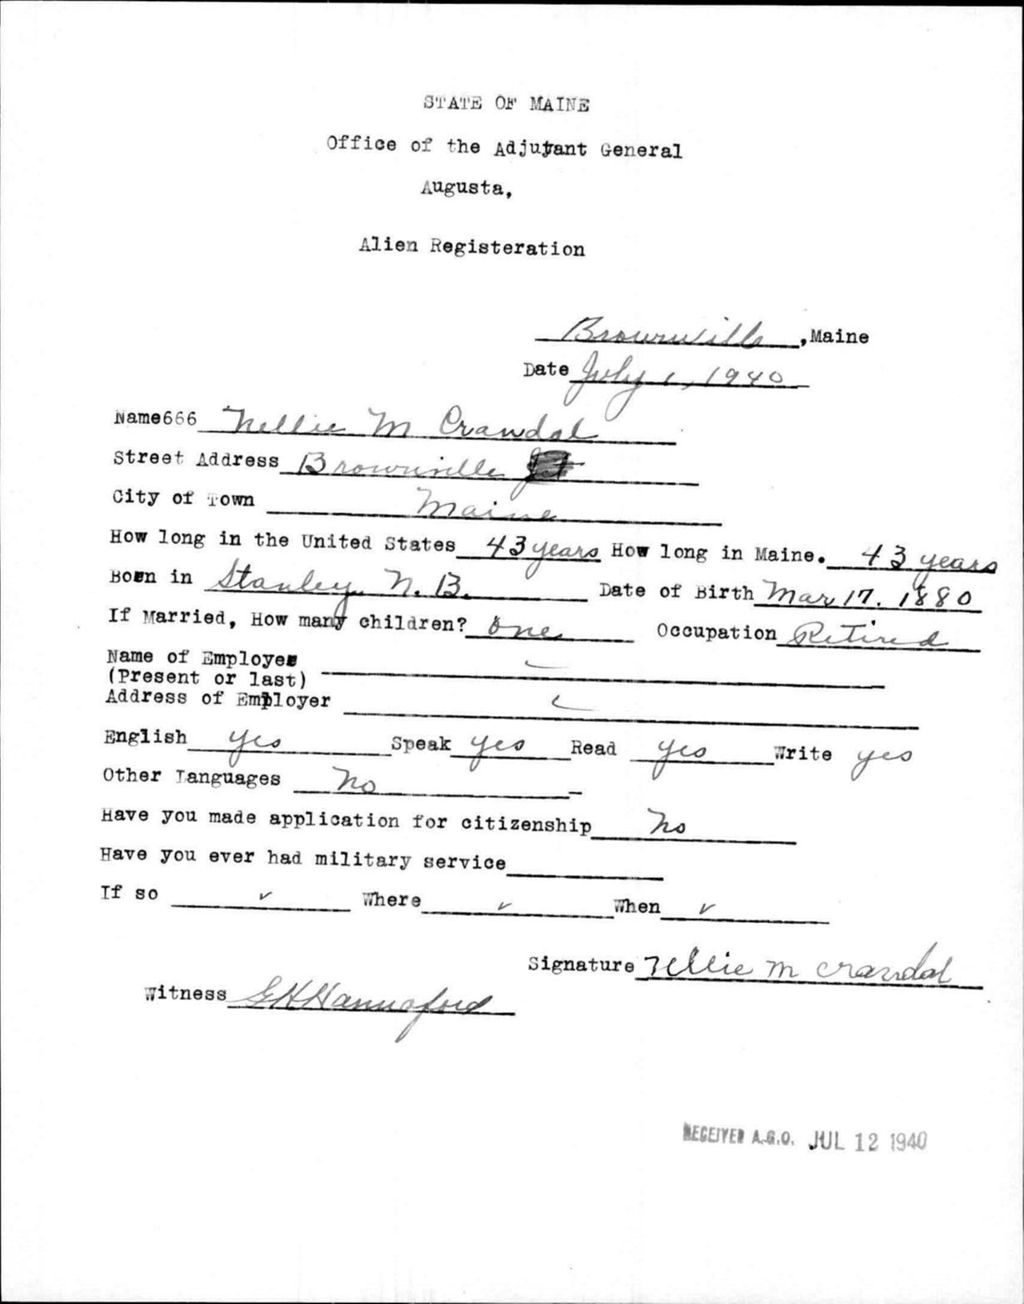 STATE OF MAINE
Office of the Adjutant General
Augusta,
Alien Registeration
Brownville, Maine
Date July 1, 1940
Name666 Nellie M Crandal
Street Address Brownville
City of Town Maine
How long in the United States 43 years How long in Maine. 43 years
Born in Stanley. N. B. Date of Birth Mar 17. 1880
If Married, How many children? One Occupation Retired
Name of Employer
(Present or last)
Address of Employer
English yes Speak yes Read yes Write yes
Other Languages No
Have you made application for citizenship No
Have you ever had military service
If so ✓ Where ✓ When ✓
Signature Nellie M Crandal
Witness G H Hannaford
RECEIVED A.G.O. JUL 12 1940